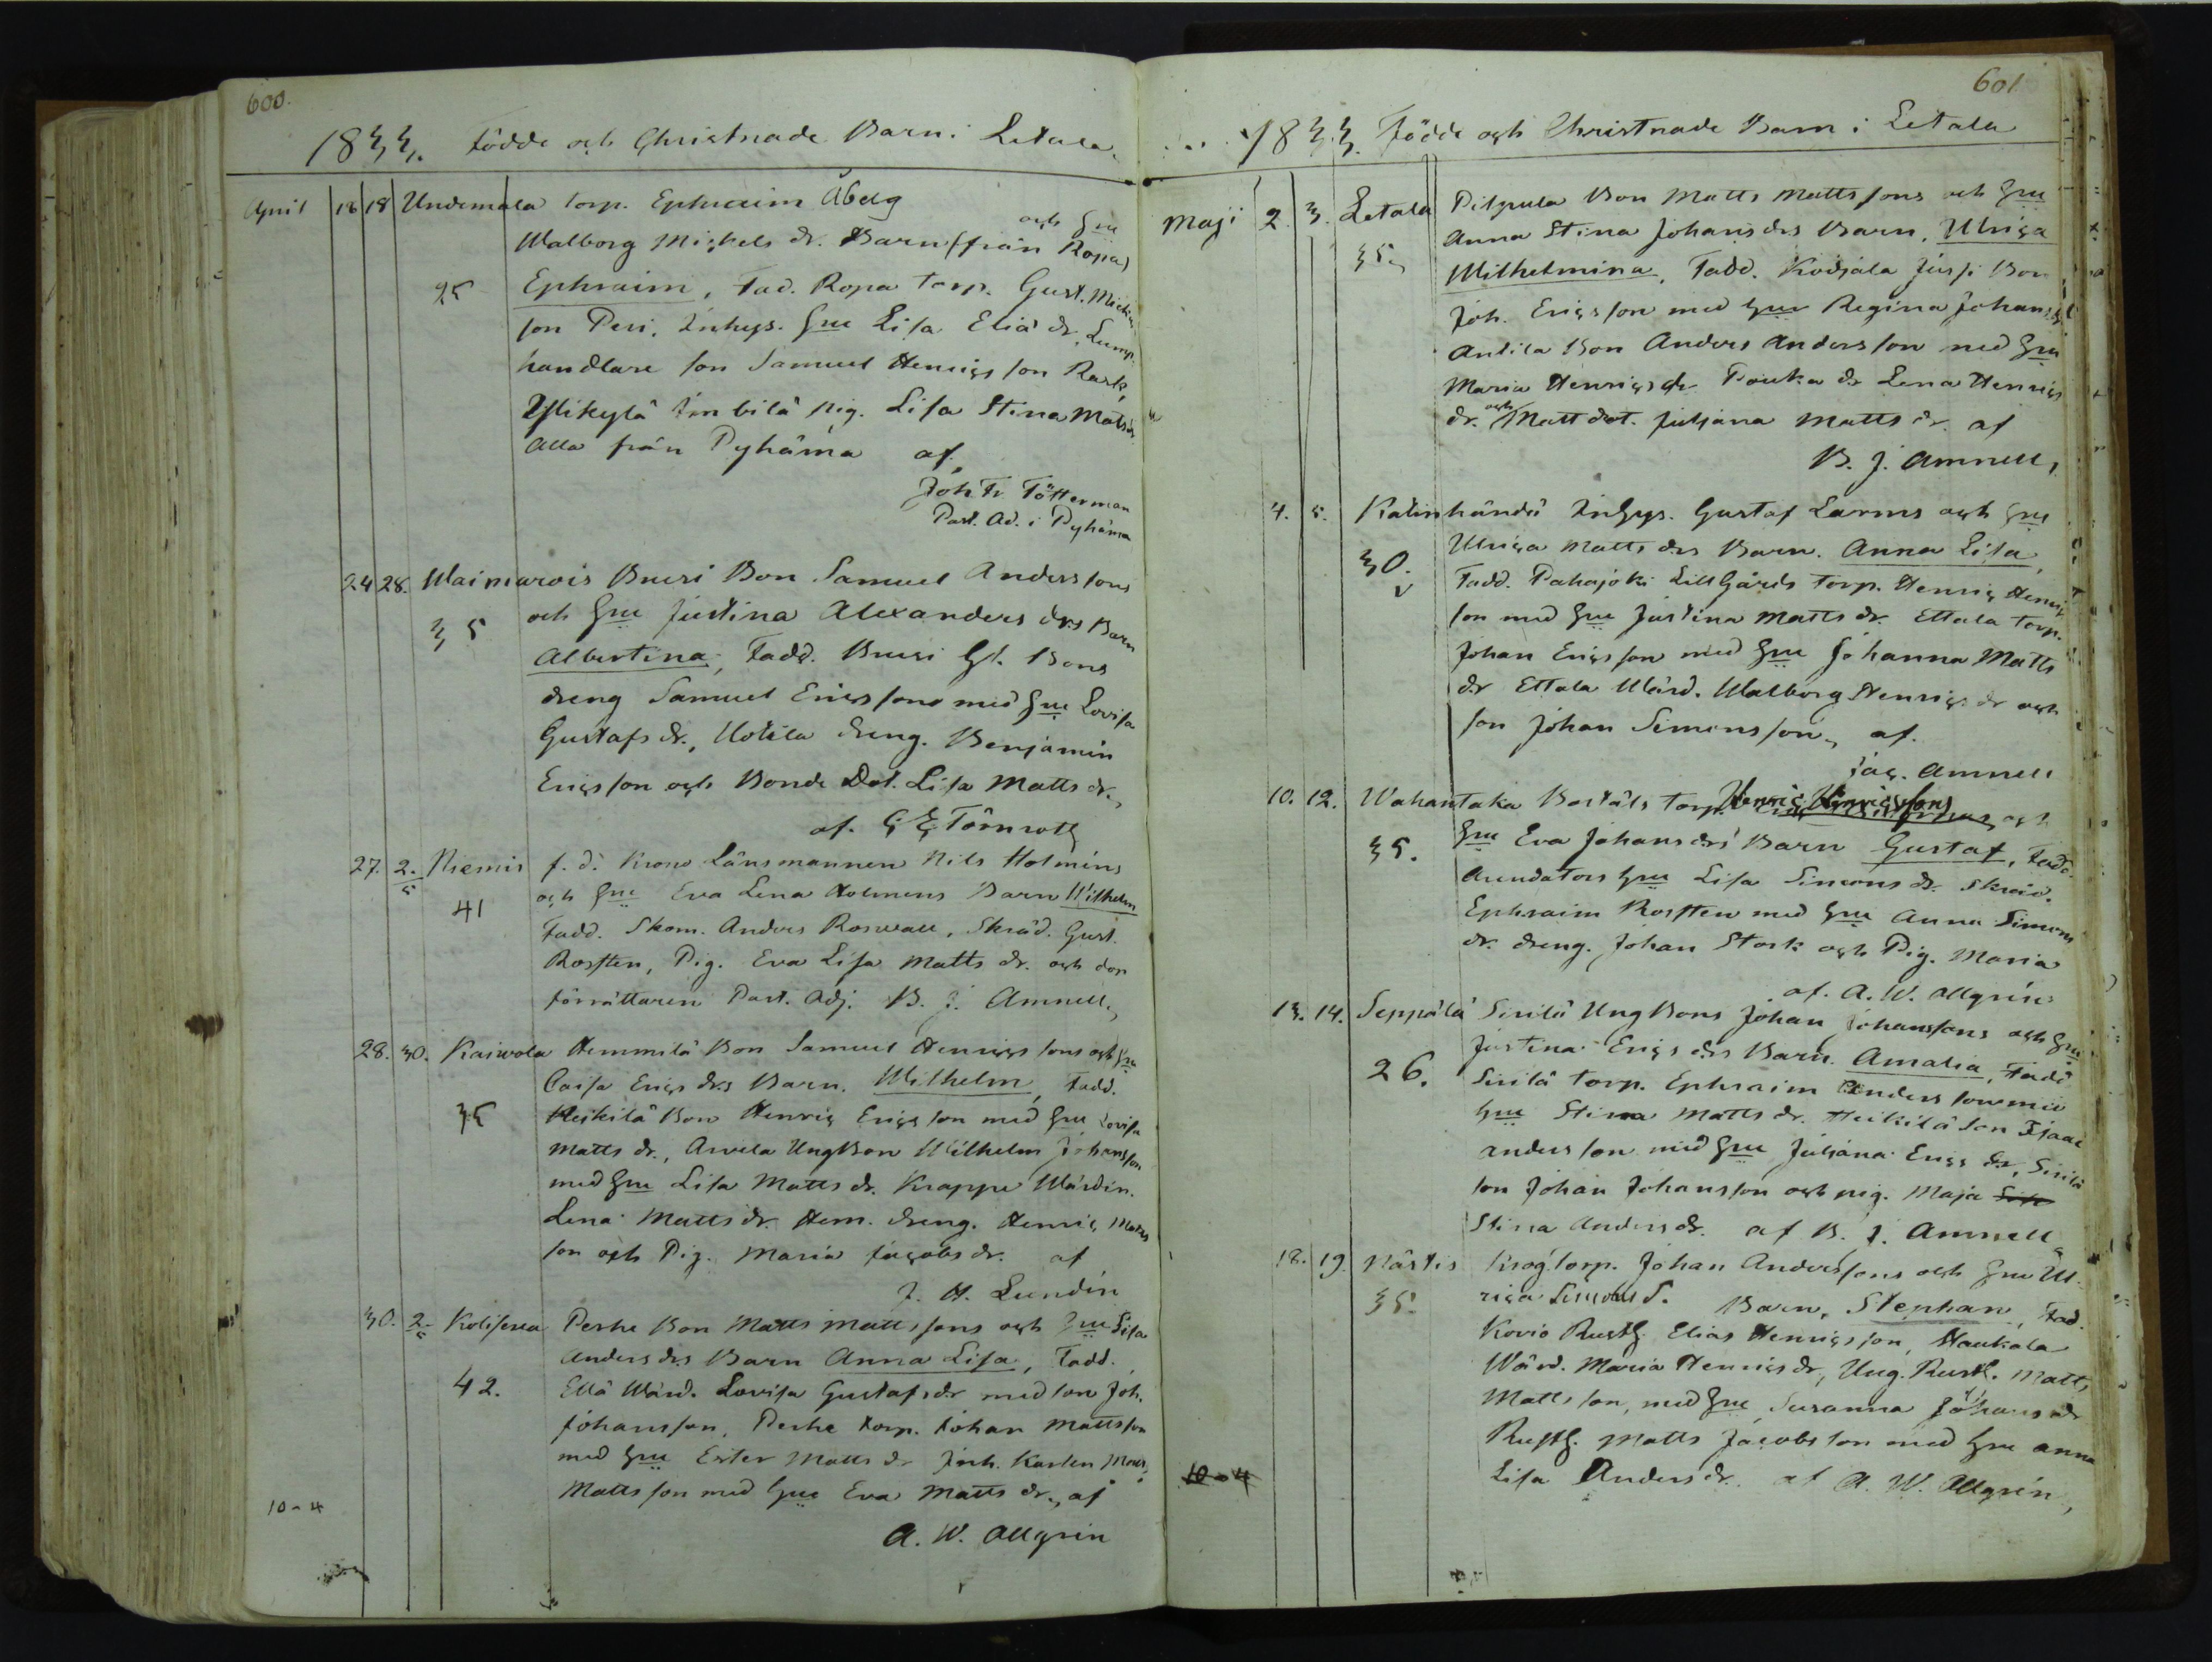 600.
1833. Födde och Christnade Barn i Letala.
April 16 18 Undemala torp. Ephraim Åberg
och Hu
Walborg Michels dr. Barn (från Ropa)
25 Ephraim, Fad. Ropa torp. Gust. Michels
son Peri, Inhys. Hu Lisa Eliæ dr, Lump
handlare son Samuel Henricsson Rask,
YlikyläImbilä pig. Lisa Stina Matsdr
alla från Pyhäma af
Joh. Fr. Tötterman
Past. Ad. i Pyhäma
24 28. Waimarois Bussi Bon Samuel Anderssons
35 och Hu Justina Alexanders drs Barn
Albertina, Fadd. Bussi Gl. Bons
dreng Samuel Ericssons med Hu Lovisa
Gustafs dr., Uotila dreng. Benjamin
Ericsson och Bonde Dot. Lisa Matts dr.,
af. G. E. Törnroth
27. 2/5 Niemis f. d. Krono Länsmannen Nils Holmins
41 och Hu Eva Lena Holmens Barn Wilhelm
Fadd. Skom. Anders Roswall, Skräd. Gust.
Rosten, Pig. Eva Lisa Matts dr. och dop
förrättaren Past. Adj. B. J. Amnell,
28. 30. Kaiwola Hemmilä Bon Samuel Henricssons och Hu
Caisa Erics drs Barn. Wilhelm, Fadd.
35 Heikilä Bon Henric Ericsson med Hu Lovisa
Matts dr., Arvela UngBon Wilhelm Johansson
med Hu Lisa Matts dr. Krappe Wärdin.
Lena Matts dr. Hem. dreng. Henric Matts
son och Pig. Maria Jacobs dr. af
J. H. Lundén
30. 2/5 Kolisera Perhe Bon Matts Mattssons och Hu Lisa
Anders drs Barn Anna Lisa, Fadd.
42. Ellä Wärd. Lovisa Gustafs dr med son Joh.
Johansson, Perhe torp. Johan Mattsson
med Hu Ester Matts dr Inh. Karlen Matts
Mattsson med Hu Eva Matts dr., af
10-4
A. W. Allgrén
601
1833. Födde och Christnade Barn i Letala
Maji 2. 3. Letala Pilpula Bon Matts Mattssons och Hu
Anna Stina Johans drs Barn, Ulrica
35 Wilhelmina, Fadd. Kodjala Jussi Bon
Joh. Ericsson med Hu Regina Johans dr
Antila Bon Anders Andersson med Hu
Maria Henrics dr Pouka dr Lena Henrics
dr. och Matt dot. Juliana Matts dr. af
B. J. Amnell,
4. 5. Katinhändä InHys. Gustaf Larms och Hu
Ulrica Matts drs Barn. Anna Lisa,
30. Fadd. Pahajoki LillGårds torp. Henric Henric
son med Hu Justina Matts dr. Ettala torp.
Johan Ericsson med Hu Johanna Matts
dr Ettala Wärd. Walborg Henrics dr och
son Johan Simonsson, af.
Jac. Amnell
10. 12. Wahantaka Bostäls torp. Henric Henricssons och
35. Hu Eva Johans drs Barn Gustaf, Fadd.
Arendators Hu Lisa Simons dr. Skräd.
Ephraim Rosten med Hu Anna Simons
dr. dreng. Johan Stork och Pig. Maria
af. A. W. Allgrén
13. 14. Seppälä Sirilä UngBons Johan Johanssons och Hu
Justina Erics drs Barn. Amalia, Fadd
26. Sirilä torp. Ephraim Andersson med
Hu Stina Matts dr. Heikilä son Isaac
Andersson med Hu Juliana Erics dr, Sirilä
son Johan Johansson och pig. Maja
Stina Anders dr. af B. J. Amnell
18. 19. Närtis Krog torp. Johan Anderssons och Hu Ul
35. rica Simons d. Barn, Stephan, Fad.
Kovio Rusth. Elias Henricsson, Haukola
Wärd. Maria Henrics dr, Ung. Rusth. Matts
Mattsson, med Hu Susanna Johans dr
Rusth. Matts Jacobsson med Hu Anna
10-4 Lisa Anders dr. af A. W. Allgrén,